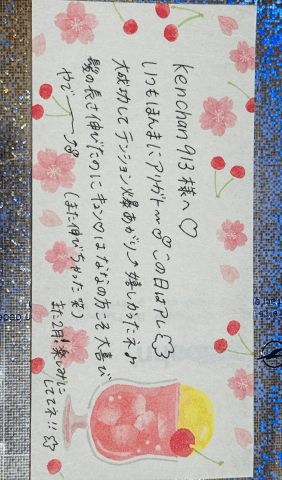 kenchan913様へ♡
いつもほんまにアリガト〜 この日はアレ
大成功してテンション爆あがり⤴嬉しかったネ♪
髪の長さ伸びたのにキンは ななの方こそ大喜び
やで〜つ (また伸びちゃった 笑)
また2月!楽しみに
しててネ!!